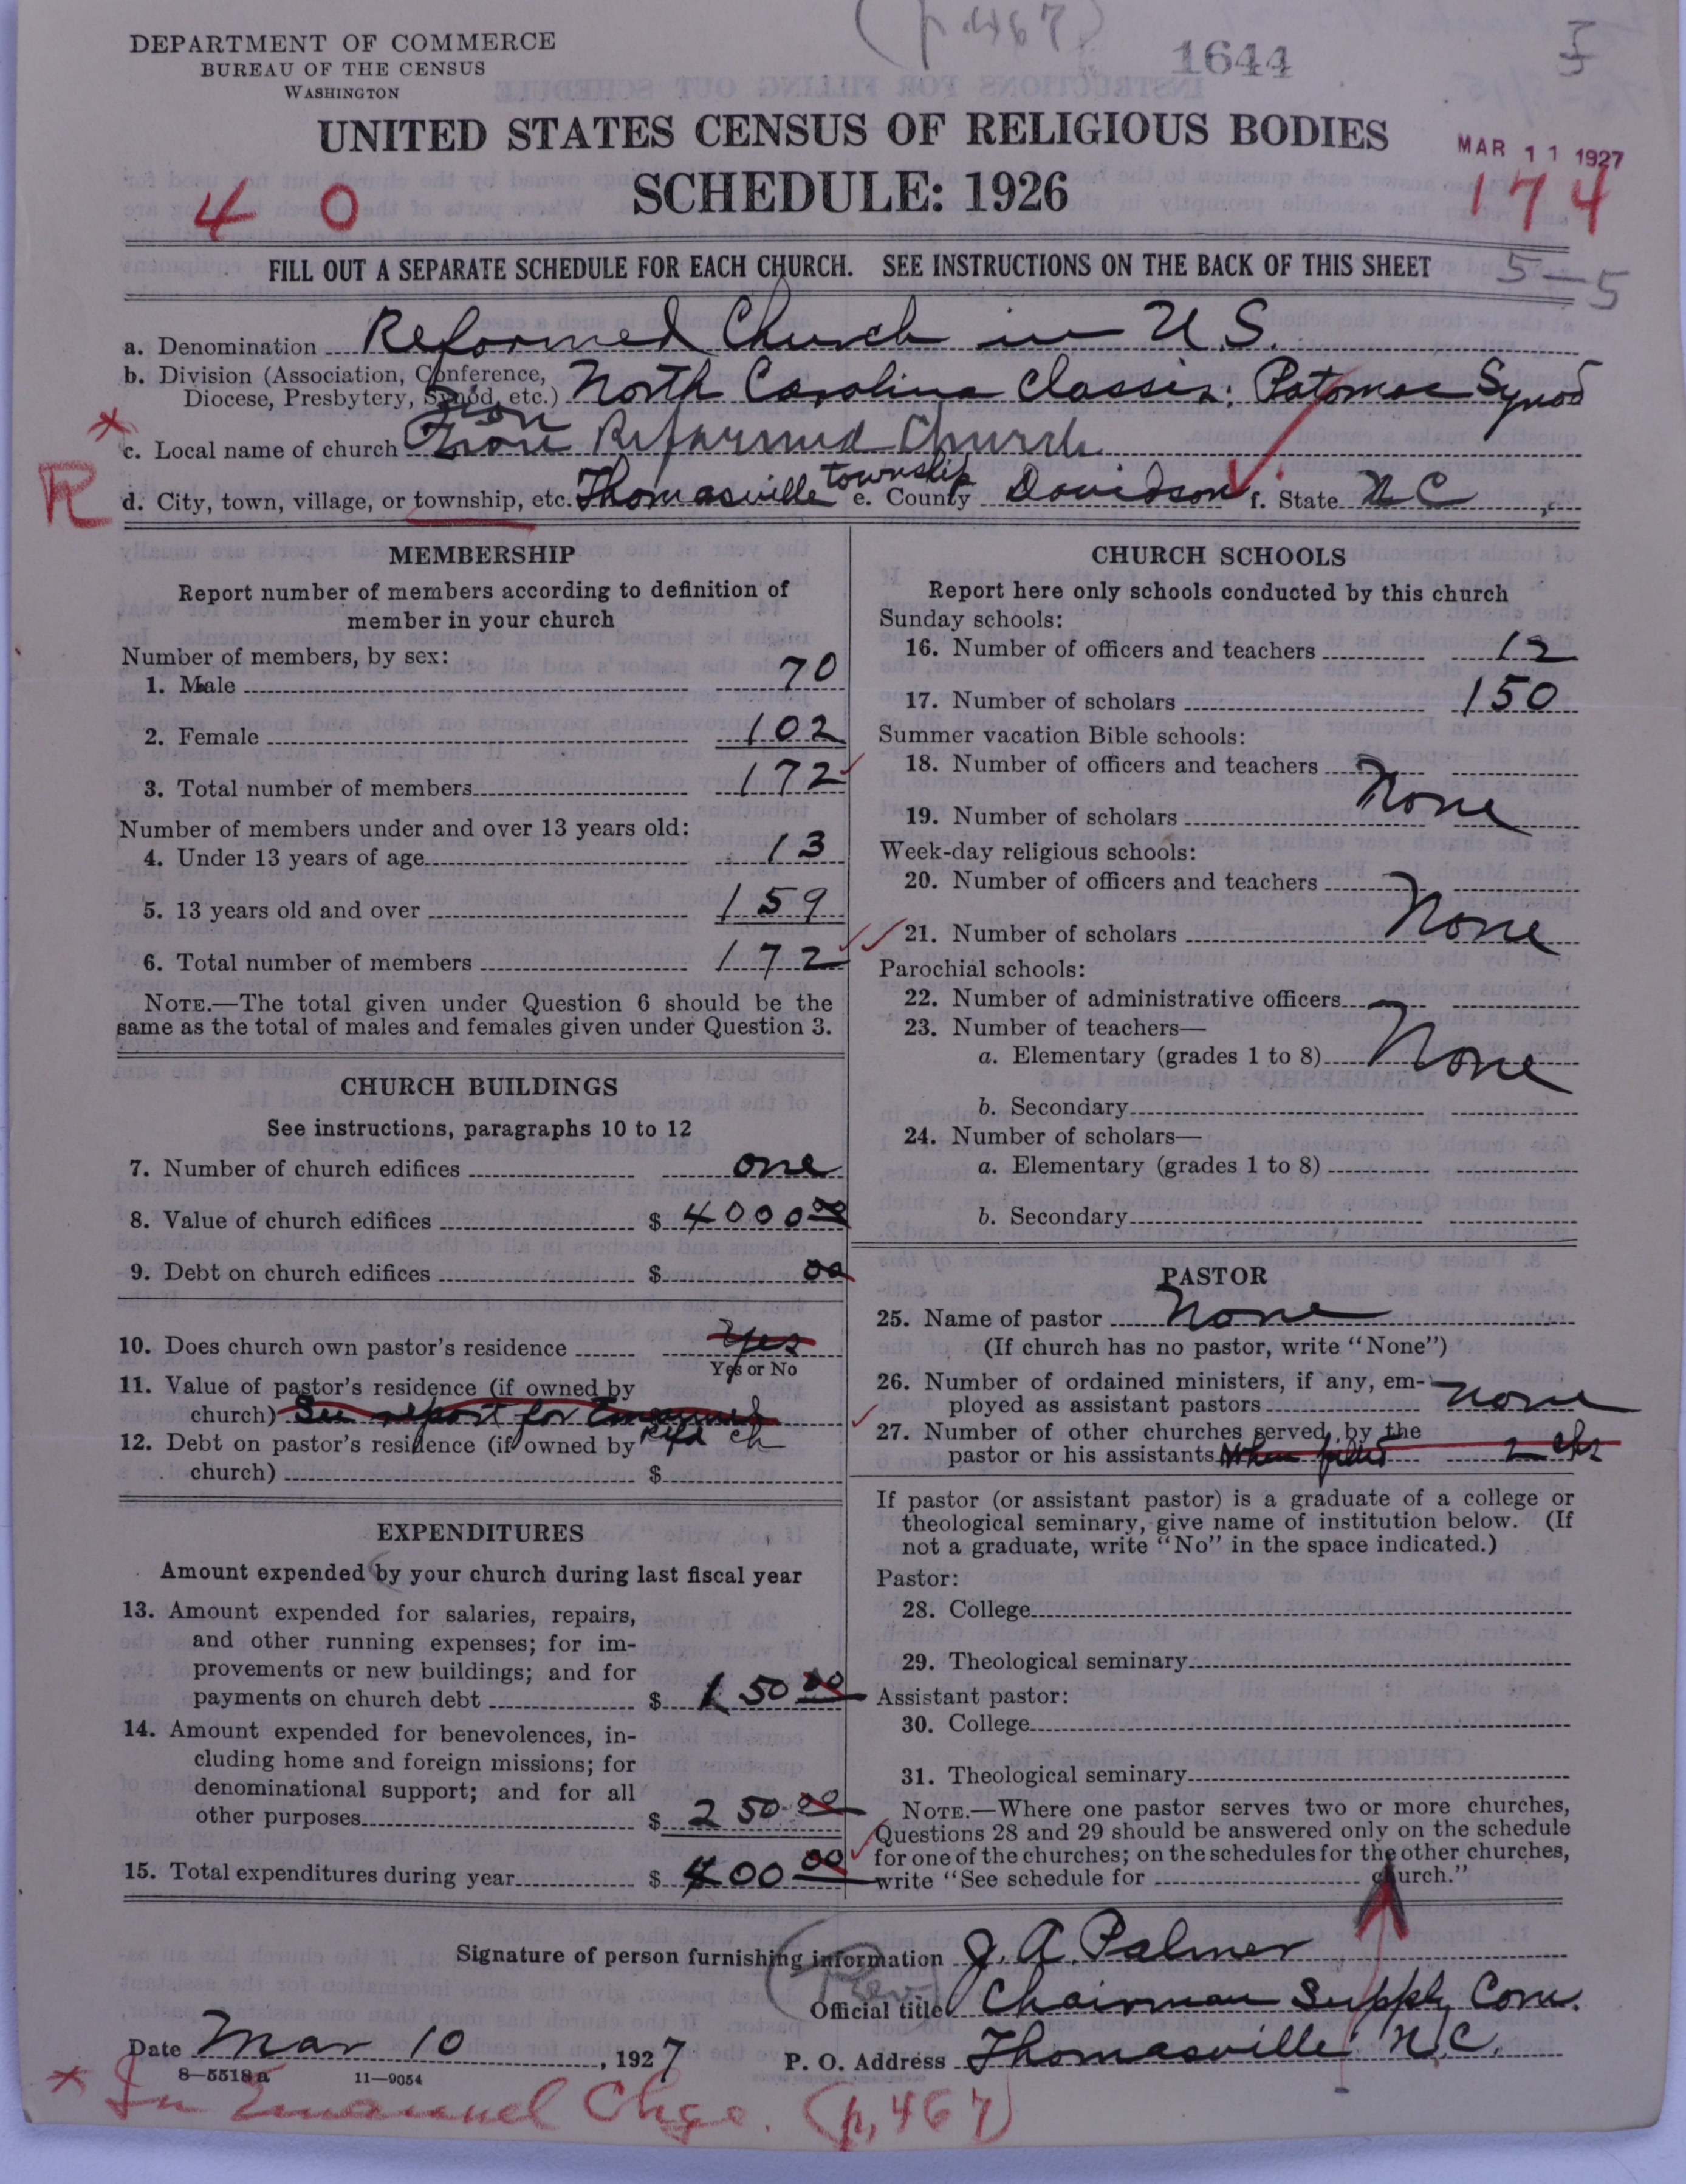 (p.467)
DEPARTMENT OF COMMERCE
BUREAU OF THE CENSUS
WASHINGTON
1644
UNITED STATES CENSUS OF RELIGIOUS BODIES
MAR 11 1927
SCHEDULE: 1926
4 0
174
FILL OUT A SEPARATE SCHEDULE FOR EACH CHURCH. SEE INSTRUCTIONS ON THE BACK OF THIS SHEET
5-5
a. Denomination Reformed Church in U.S.
b. Division (Association, Conference, Diocese, Presbytery, Synod, etc.) North Carolina Classis: Potomac Synod
Zion
* c. Local name of church Zion Reformed Church
R d. City, town, village, or township, etc. Thomasville township e. County Davidson f. State N C
MEMBERSHIP
Report number of members according to definition of
member in your church
Number of members, by sex:
1. Male 70
2. Female 102
3. Total number of members 172
Number of members under and over 13 years old:
4. Under 13 years of age 13
5. 13 years old and over 159
6. Total number of members 172
NOTE.—The total given under Question 6 should be the
same as the total of males and females given under Question 3.
CHURCH BUILDINGS
See instructions, paragraphs 10 to 12
7. Number of church edifices one
8. Value of church edifices $ 4000 00
9. Debt on church edifices $ 00
10. Does church own pastor's residence Yes
Yes or No
11. Value of pastor's residence (if owned by
church) See report for Emanuel
Refd ch
12. Debt on pastor's residence (if owned by
church) $
EXPENDITURES
Amount expended by your church during last fiscal year
13. Amount expended for salaries, repairs,
and other running expenses; for im-
provements or new buildings; and for
payments on church debt $ 150 00
14. Amount expended for benevolences, in-
cluding home and foreign missions; for
denominational support; and for all
other purposes $ 250 00
15. Total expenditures during year $ 400 00
CHURCH SCHOOLS
Report here only schools conducted by this church
Sunday schools:
16. Number of officers and teachers 12
17. Number of scholars 150
Summer vacation Bible schools:
18. Number of officers and teachers
None
19. Number of scholars
Week-day religious schools:
20. Number of officers and teachers
None
21. Number of scholars
Parochial schools:
22. Number of administrative officers
23. Number of teachers—
None
a. Elementary (grades 1 to 8)
b. Secondary
24. Number of scholars—
a. Elementary (grades 1 to 8)
b. Secondary
PASTOR
25. Name of pastor None
(If church has no pastor, write "None")
26. Number of ordained ministers, if any, em-
ployed as assistant pastors none
27. Number of other churches served by the
pastor or his assistants When filled 2 chs
If pastor (or assistant pastor) is a graduate of a college or
theological seminary, give name of institution below. (If
not a graduate, write "No" in the space indicated.)
Pastor:
28. College
29. Theological seminary
Assistant pastor:
30. College
31. Theological seminary
NOTE.—Where one pastor serves two or more churches,
Questions 28 and 29 should be answered only on the schedule
for one of the churches; on the schedules for the other churches,
write "See schedule for church."
Signature of person furnishing information J. A. Palmer
(Rev)
Official title Chairman Supply Com.
Date Mar 10, 1927
P. O. Address Thomasville N.C.
8—5518a 11—9054
* In Emanuel Chge. (p, 467)